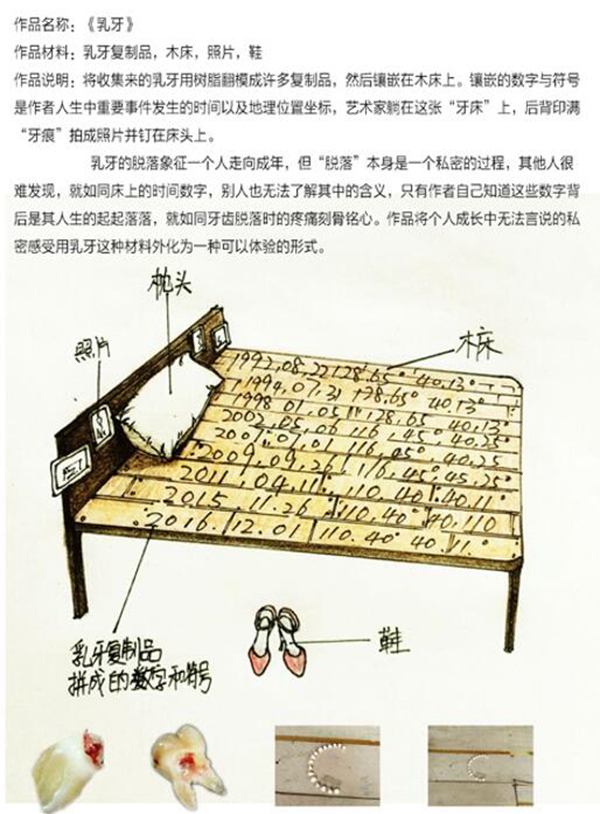 作品名称：《乳牙》
作品材料：乳牙复制品，木床，照片，鞋
作品说明：将收集来的乳牙用树脂翻模成许多复制品，然后镶嵌在木床上。镶嵌的数字与符号
是作者人生中重要事件发生的时间以及地理位置坐标，艺术家躺在这张“牙床”上，后背印满
“牙痕”拍成照片并钉在床头上。
乳牙的脱落象征一个人走向成年，但“脱落”本身是一个私密的过程，其他人很
难发现，就如同床上的时间数字，别人也无法了解其中的含义，只有作者自己知道这些数字背
后是其人生的起起落落，就如同牙齿脱落时的疼痛刻骨铭心。作品将个人成长中无法言说的私
密感受用乳牙这种材料外化为一种可以体验的形式。
枕头
照片
木床
1992.08.22 128.65° 40.13°
1994.07.31 128.65° 40.13°
1998.01.05 128.65° 40.13°
2002.05.06 116.45° 40.25°
2007.07.01 116.45° 40.25°
2009.09.26 116.45° 45.25°
2011.04.11 110.40° 40.11°
2015.11.26 110.40° 40.110
2016.12.01 110.40° 40.11°
乳牙复制品
拼成的数字和符号
鞋